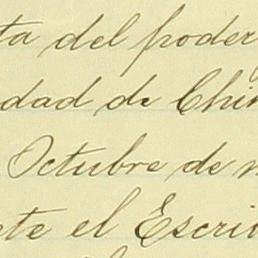 ta del poder
dad de Chi
Octubre de
ete el Escri